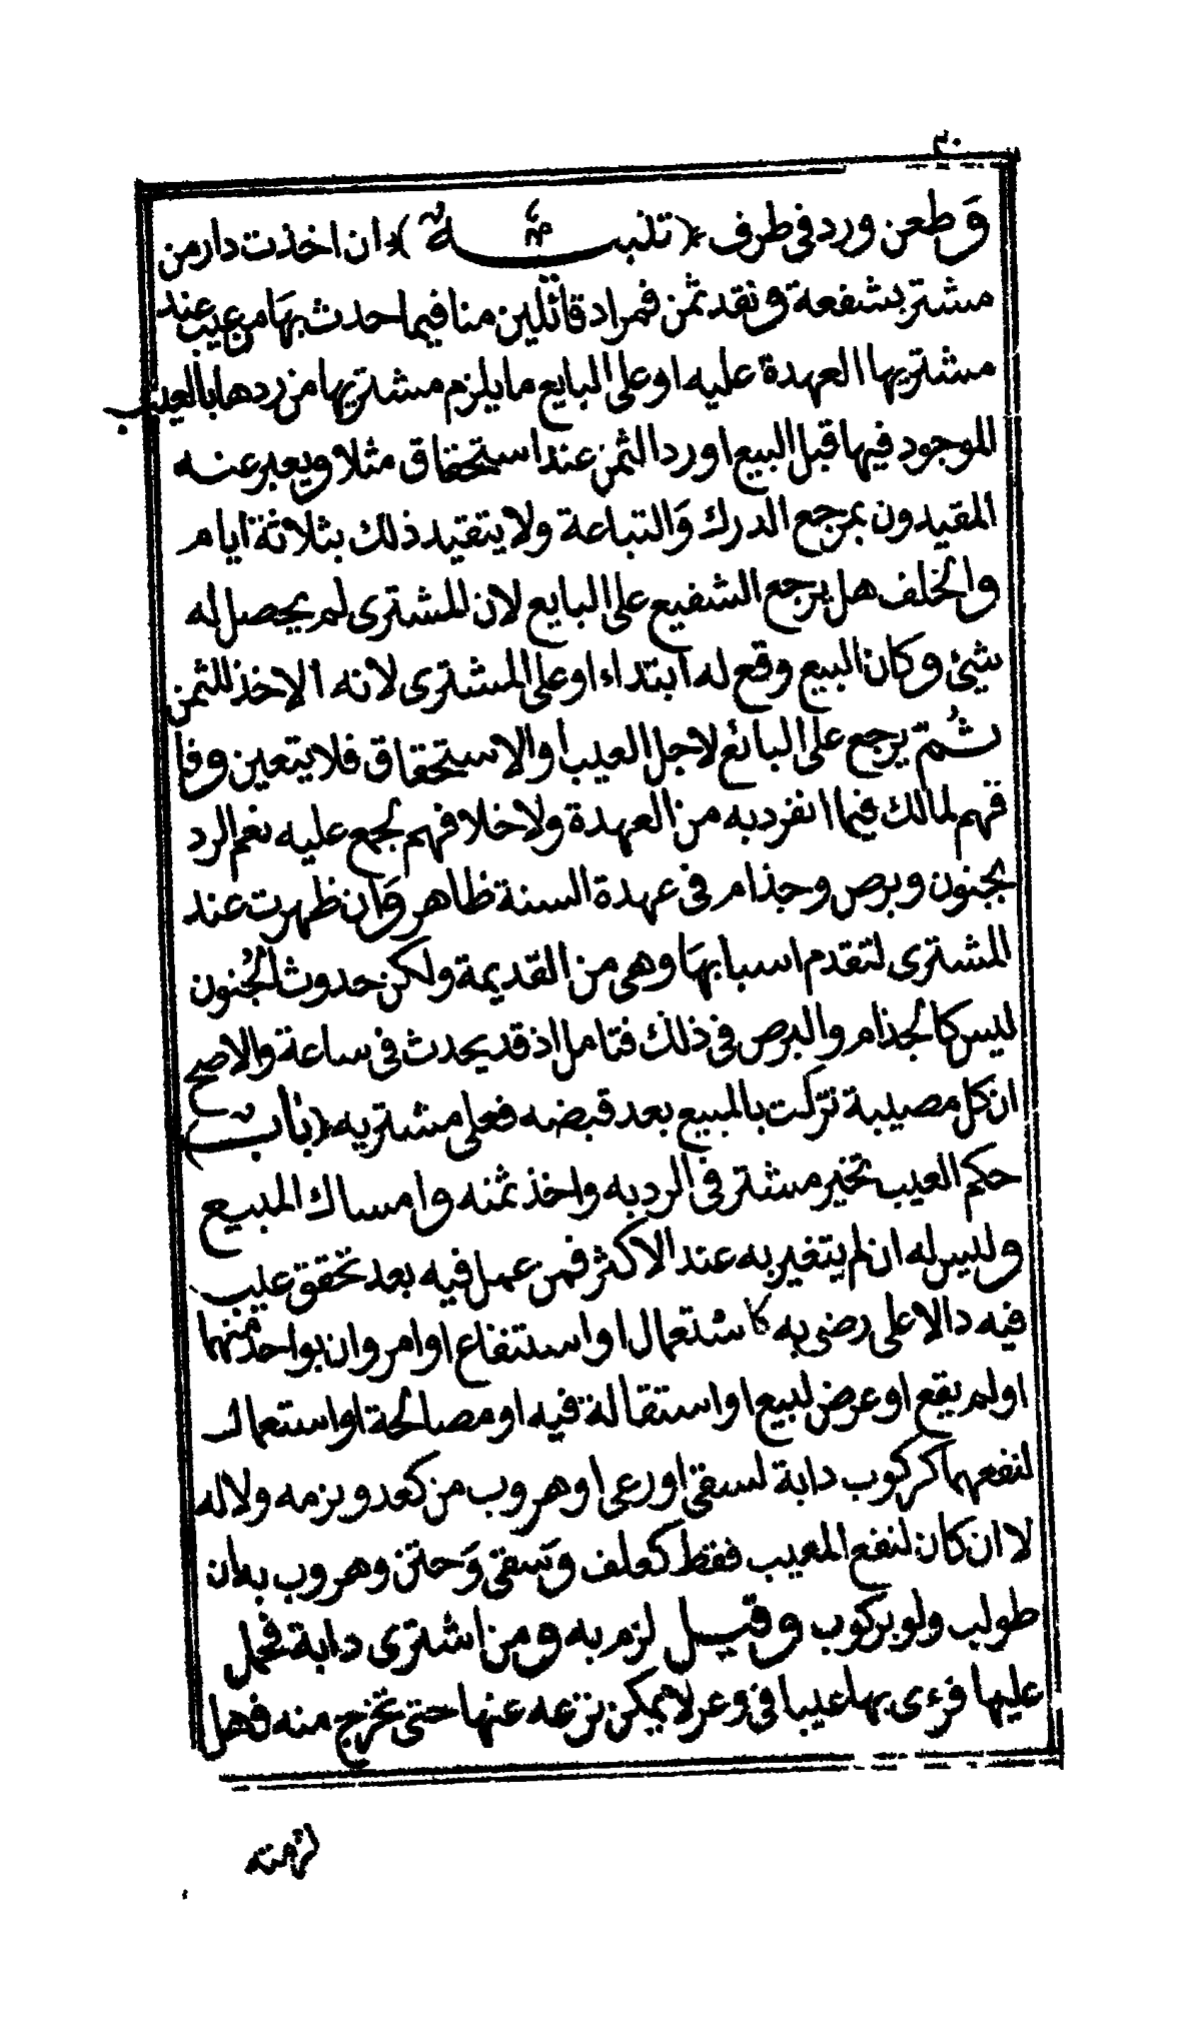 ٣٠
وطعن ورد في طرف (تنبيه) ان اخذت دار من
مشتر بشفعة ونقد ثمن فمراد قائلين منا فيما احدث بها من عيب عند
مشتريها العهدة عليه او على البايع ما يلزم مشتريها من ردها بالعيب
الموجود فيها قبل البيع او رد الثمن عند استحقاق مثلا ويعبر عنه
المقيدون بمرجع الدرك والتباعة ولا يتقيد ذلك بثلاثة ايام
والخلف هل يرجع الشفيع على البايع لان المشترى لم يحصل له
شيئ وكان البيع وقع له ابتداء او على المشترى لانه الاخذ للثمن
ثم يرجع على البائع لاجل العيب او الاستحقاق فلا يتعين وفا
قهم لمالك فيما انفرد به من العهدة ولا خلا فهم لجمع عليه نعم الرد
بجنون وبرص وجذام في عهدة السنة ظاهر وان ظهرت عند
المشترى لتقدم اسبابها وهى من القديمة ولكن حدوث الجنون
ليس كالجذام والبرص في ذلك فتامل اذ قد يحدث في ساعة والاصح
ان كل مصيبة نزلت بالمبيع بعد قبضه فعلى مشتريه (باب)
حكم العيب تخير مشتر في الرد به واخذ ثمنه وامساك المبيع
وليس له ان لم يتغير به عند الاكثر فمن عمل فيه بعد تحقق عيب
فيه دالا على رضى به كاستعمال او استنفاع او امر وان بواحد منهما
او لم يقع او عرض لبيع او استقالة فيه او مصالحة او استعمال
لنفعهما كركوب دابة لسقى او رعى او هروب من كعدو بزمه ولا له
لا ان كان لنفع المعيب فقط كعلف وسقى وختن وهروب به ان
طولب ولو بركوب وقيل لزم به ومن اشترى دابة فحمل
عليها فرءى بها عيبا في وعر لا يمكن نزعه عنها حتى تخرج منه فهل
لزمته